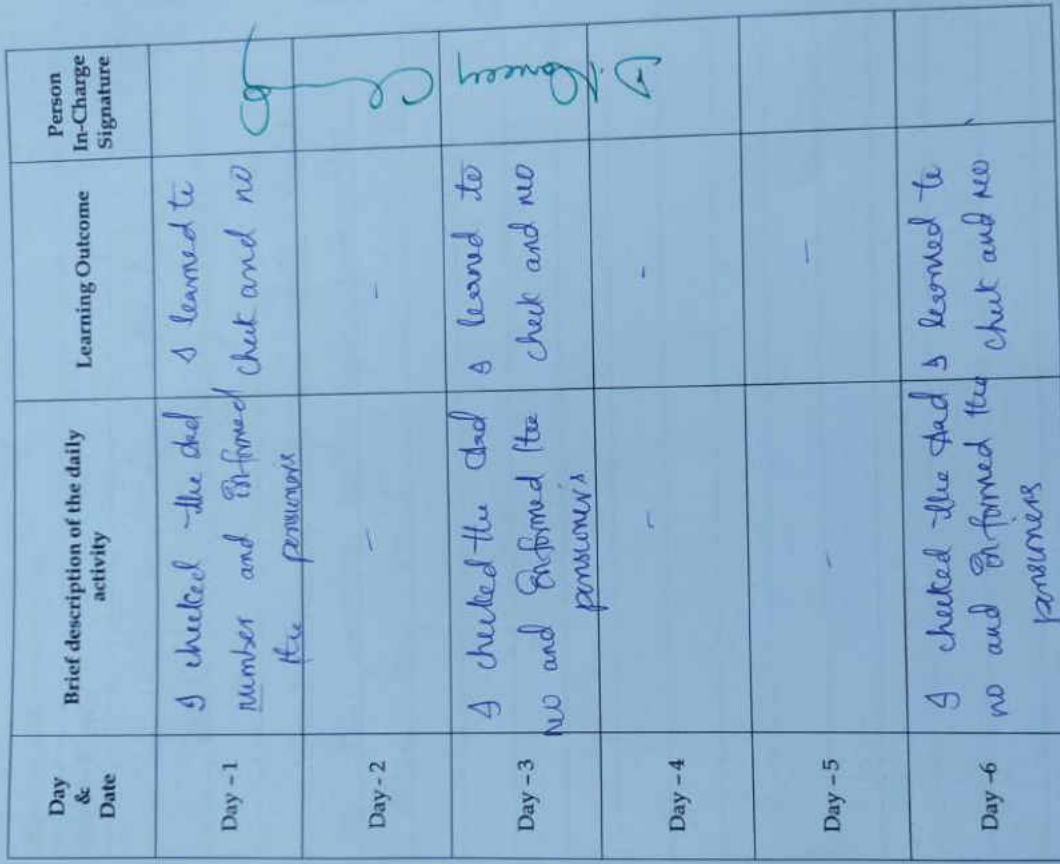 Day
&
Date
Brief description of the daily
activity
Learning Outcome
Person
In-Charge
Signature
Day - 1
I checked the
number and informed
the pensioners
I learned to
check and no
Day - 2
-
-
Day - 3
I checked the
no and informed the
pensioners
I learned to
check and no
Day - 4
-
-
Day - 5
-
-
Day -6
I checked the
no and informed the
pensioners
I learned to
check and no